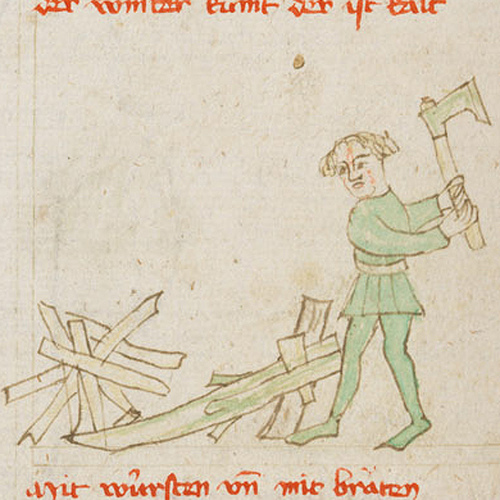 der winter kumt der ist kalt
Mit wûrsten vn̄ mit bräten